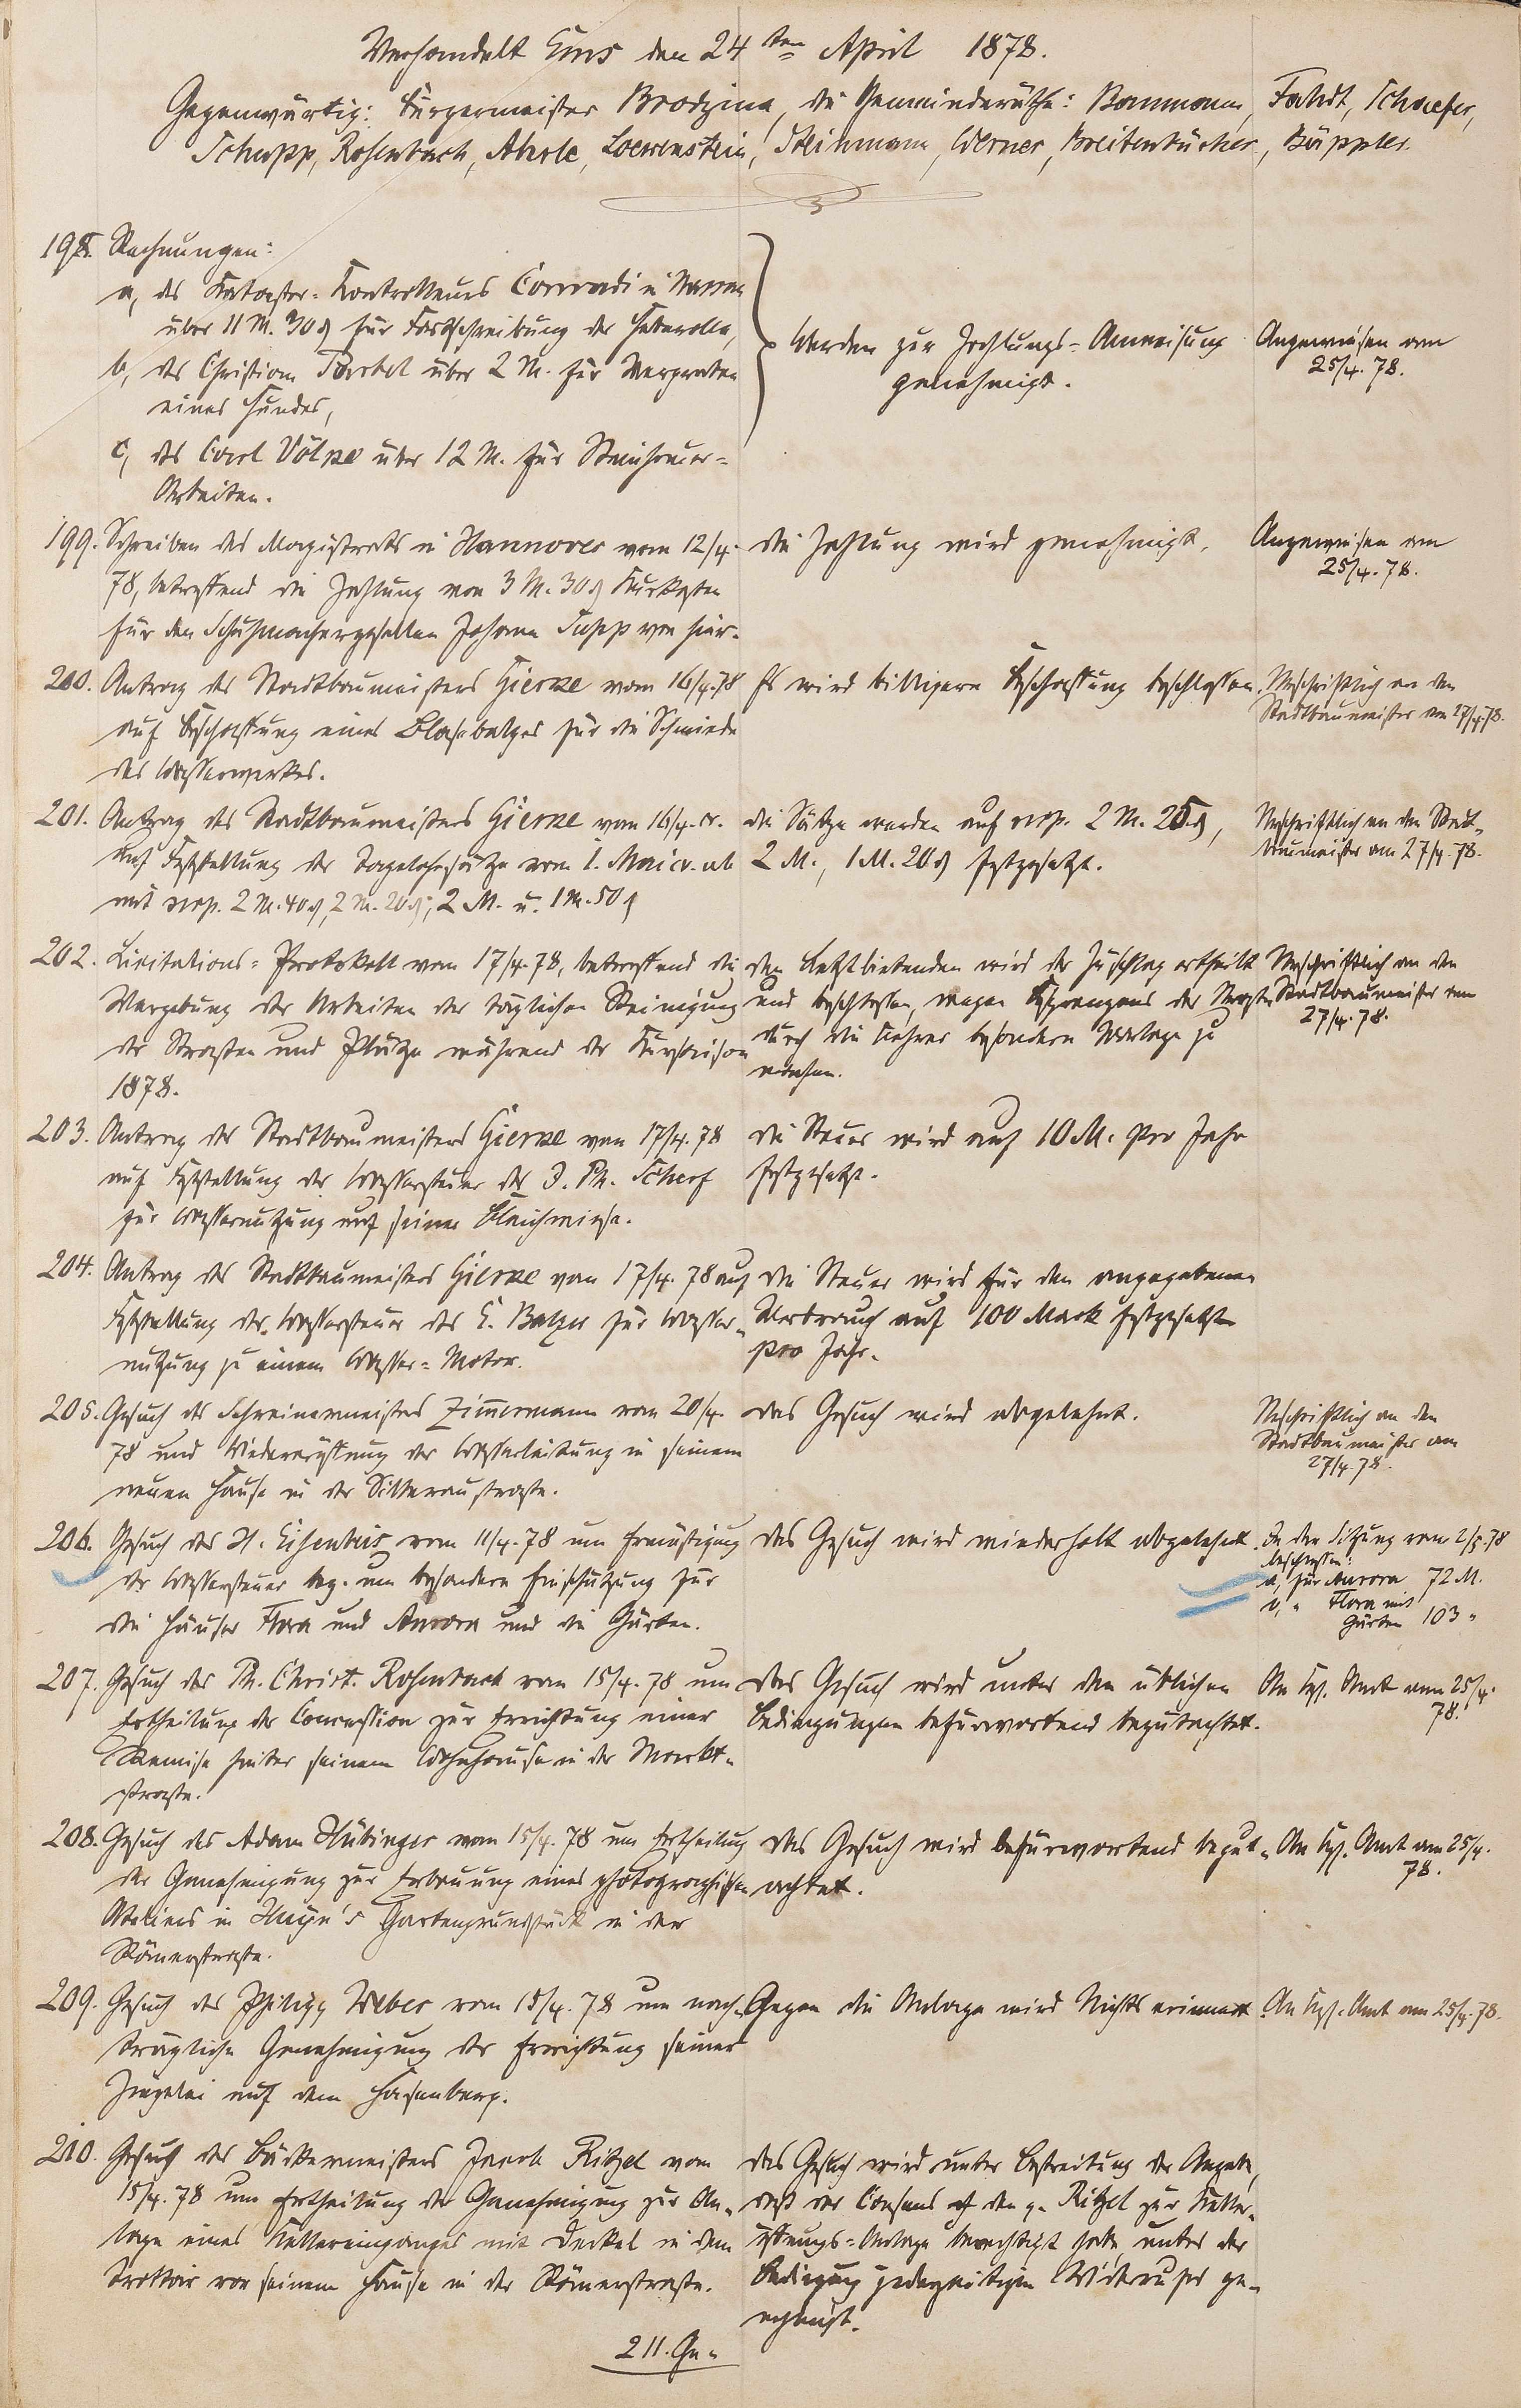 Verhandelt Ems den 24ten April 1878.
Gegenwärtig: Bürgermeister Brodzina, die Gemeinderäthe: Baumann, Fahdt, Schaefer,
Schupp, Rosenbach, Aherle, Loewenstein, Steinmann, Werner, Breitenbücher, Bäppler.
198. Rechnungen:
a, des Kataster-Kontrolleurs Conradi in Nassau
über 11 M. 30 ₰ für Fortschreibung der Heberolle,
b, des Christian über 2 M. für Vergraben
eines Hundes,
c, des Carl Völpel über 12 M. für Steinhauer-
Arbeiten.
Werden zur Zahlungs-Anweisung
genehmigt.
Angewiesen am
25/4. 78.
199. Schreiben des Magistrats in Hannover vom 12/4.
78, betreffend die Zahlung von 3 M. 30 ₰ Kurkosten
für den Schuhmachergesellen Johann Supp von hier.
die Zahlung wird genehmigt.
Angewiesen am
25/4. 78.
200. Antrag des Stadtbaumeisters Gierke vom 16/4. 78
auf Beschaffung eines Blasebalges für die Schmiede
des Wasserwerkes.
Es wird billigere Beschaffung beschlossen.
Abschriftlich an den
Stadtbaumeister am 27/4. 78.
201. Antrag des Stadtbaumeisters Gierke vom 16/4. cr.
auf Feststellung der Tagelohnsätze vom 1. Mai cr. ab
mit resp. 2 M. 40 ₰, 2 M. 20 ₰, 2 M. u. 1 M. 50 ₰
die Sätze werden auf resp. 2 M. 25 ₰,
2 M., 1 M. 20 ₰ festgesetzt.
Abschriftlich an den Stadt-
baumeister am 27/4. 78.
202. Licitations-Protokoll vom 17/4. 78, betreffend die
Vergebung der Arbeiten der täglichen Reinigung
der Strassen und Plätze während der Kursaison
1878.
den Letztbietenden wird der Zuschlag ertheilt
und beschlossen, wegen Besprengens der Strassen
durch die Kehrer besondere Vorlage zu
machen.
Abschriftlich an den
Stadtbaumeister am
27/4. 78.
203. Antrag des Stadtbaumeisters Gierke vom 17/4. 78
auf Feststellung der Wassersteuer des J. Ph. Scherf
für Wassernutzung auf seiner Bleichwiese.
die Steuer wird auf 10 M. pro Jahr
festgesetzt.
204. Antrag des Stadtbaumeisters Gierke vom 17/4. 78 auf
Feststellung der Wassersteuer des E. Balzer für Wasser-
nutzung zu einem Wasser-Motor.
die Steuer wird für den angegebenen
Verbrauch auf 100 Mark festgesetzt
pro Jahr.
205. Gesuch des Schreinermeisters Zimmermann vom 20/4.
78 und Wiedereröffnung der Wasserleitung in seinem
neuen Hause in der Silberaustrasse.
das Gesuch wird abgelehnt.
Abschriftlich an den
Stadtbaumeister am
27/4. 78.
206. Gesuch des H. Eisenbeis vom 11/4. 78 um Ermäßigung
der Wassersteuer bez. um besondere Einschätzung für
die Häuser Flora und Aurora und die Gärten.
das Gesuch wird wiederholt abgelehnt.
In der Sitzung vom 2/5. 78
beschlossen:
a, für Aurora 72 M.
b, " Flora mit
Garten 103 "
207. Gesuch des Ph. Christ. Rosenbach vom 15/4. 78 um
Ertheilung der Concession zur Errichtung einer
Remise hinter seinem Wohnhause in der Markt-
strasse.
das Gesuch wird unter den üblichen
Bedingungen befürwortend begutachtet.
An Kgl. Amt am 25/4.
78.
208. Gesuch des Adam Hübinger vom 15/4. 78 um Ertheilung
der Genehmigung zur Erbauung eines photographischen
Ateliers in Heyn's Gartengrundstück in der
Römerstrasse.
das Gesuch wird befürwortend begut-
achtet.
An Kgl. Amt am 25/4.
78.
209. Gesuch des Philipp Weber vom 15/4. 78 um nach-
trägliche Genehmigung der Errichtung seiner
Ziegelei auf dem Hasenberg.
Gegen die Anlage wird Nichts erinnert.
An Kgl. Amt am 25/4. 78.
210. Gesuch des Bäckermeisters Jacob Ritzel vom
15/4. 78 um Ertheilung der Genehmigung zur An-
lage eines Kellereinganges mit Deckel in dem
Trottoir vor seinem Hause in der Römerstrasse.
das Gesuch wird unter Bestreitung der Angabe,
daß der Consens den p. Ritzel zur Keller-
öffnungs-Anlage berechtigt habe unter der
Bedingung jederzeitigen Widerrufes ge-
nehmigt.
211. Ge-